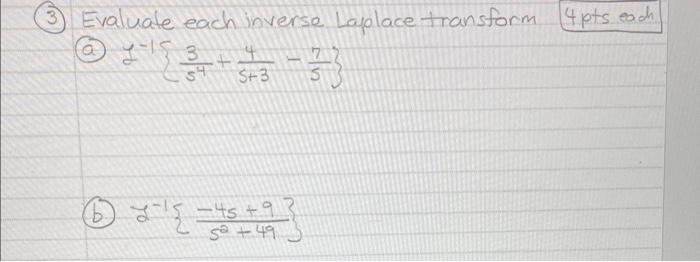 ③ Evaluate each inverse Laplace transform 4 pts each
ⓐ ℒ⁻¹{3/s⁴ + 4/(s+3) − 7/s}
ⓑ ℒ⁻¹{(−4s + 9)/(s² + 49)}